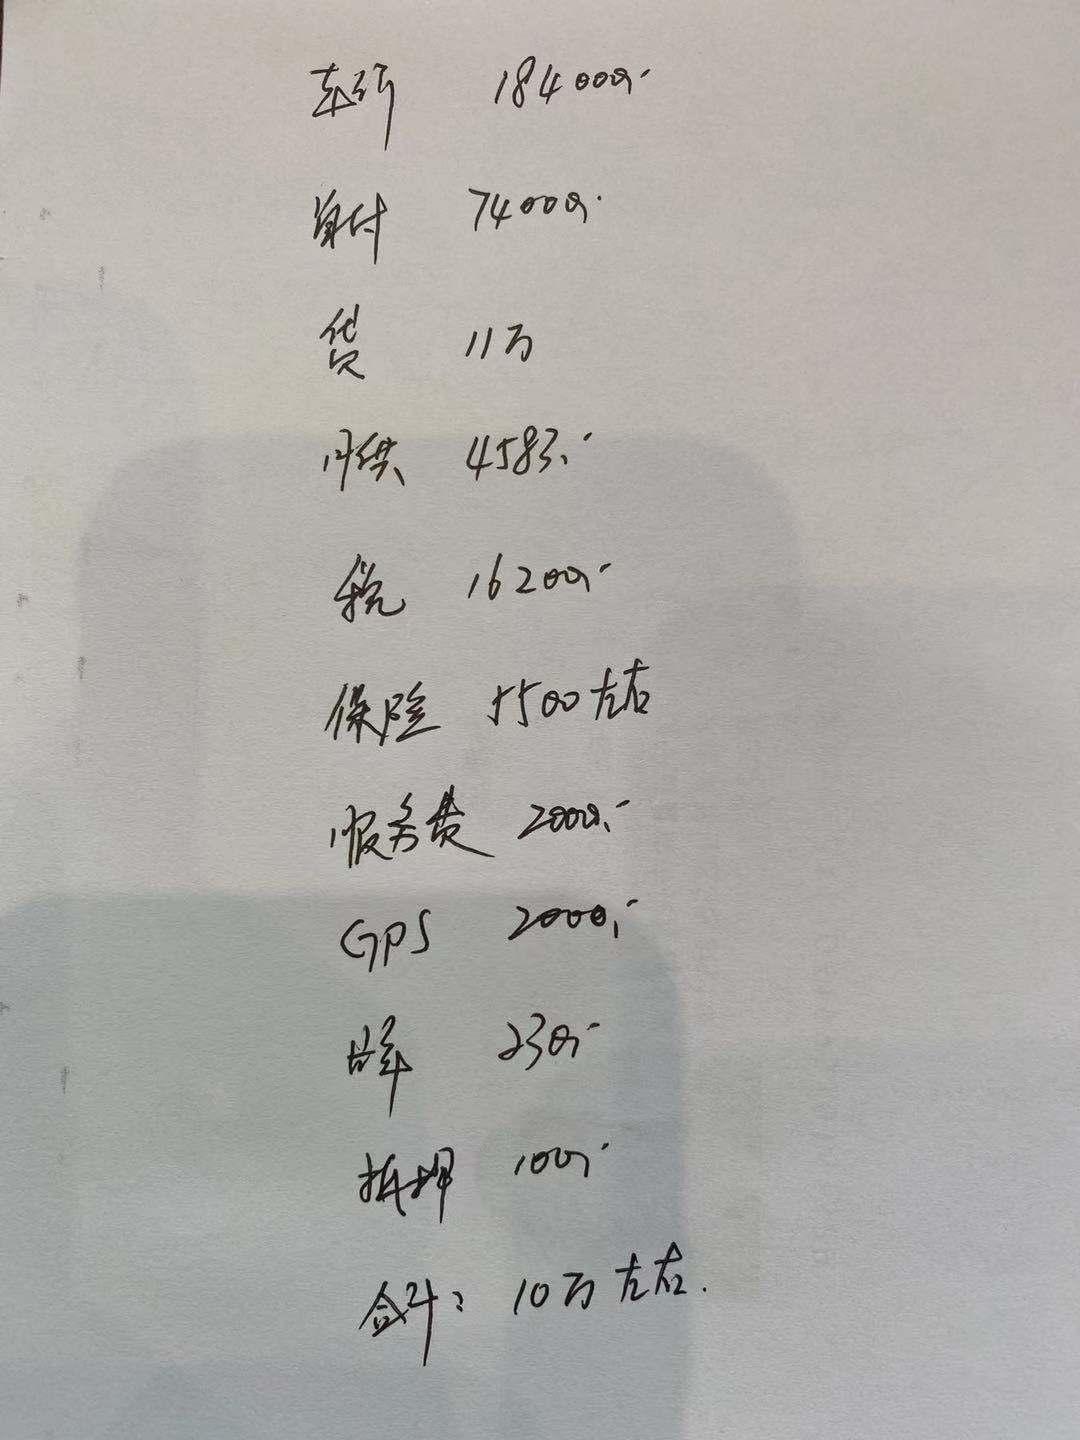 车价 184000.-
首付 74000.-
贷 11万
月供 4583.-
税 16200.-
保险 5500左右
服务费 2000.-
GPS 2000.-
230.-
抵押 100.-
合计: 10万左右.